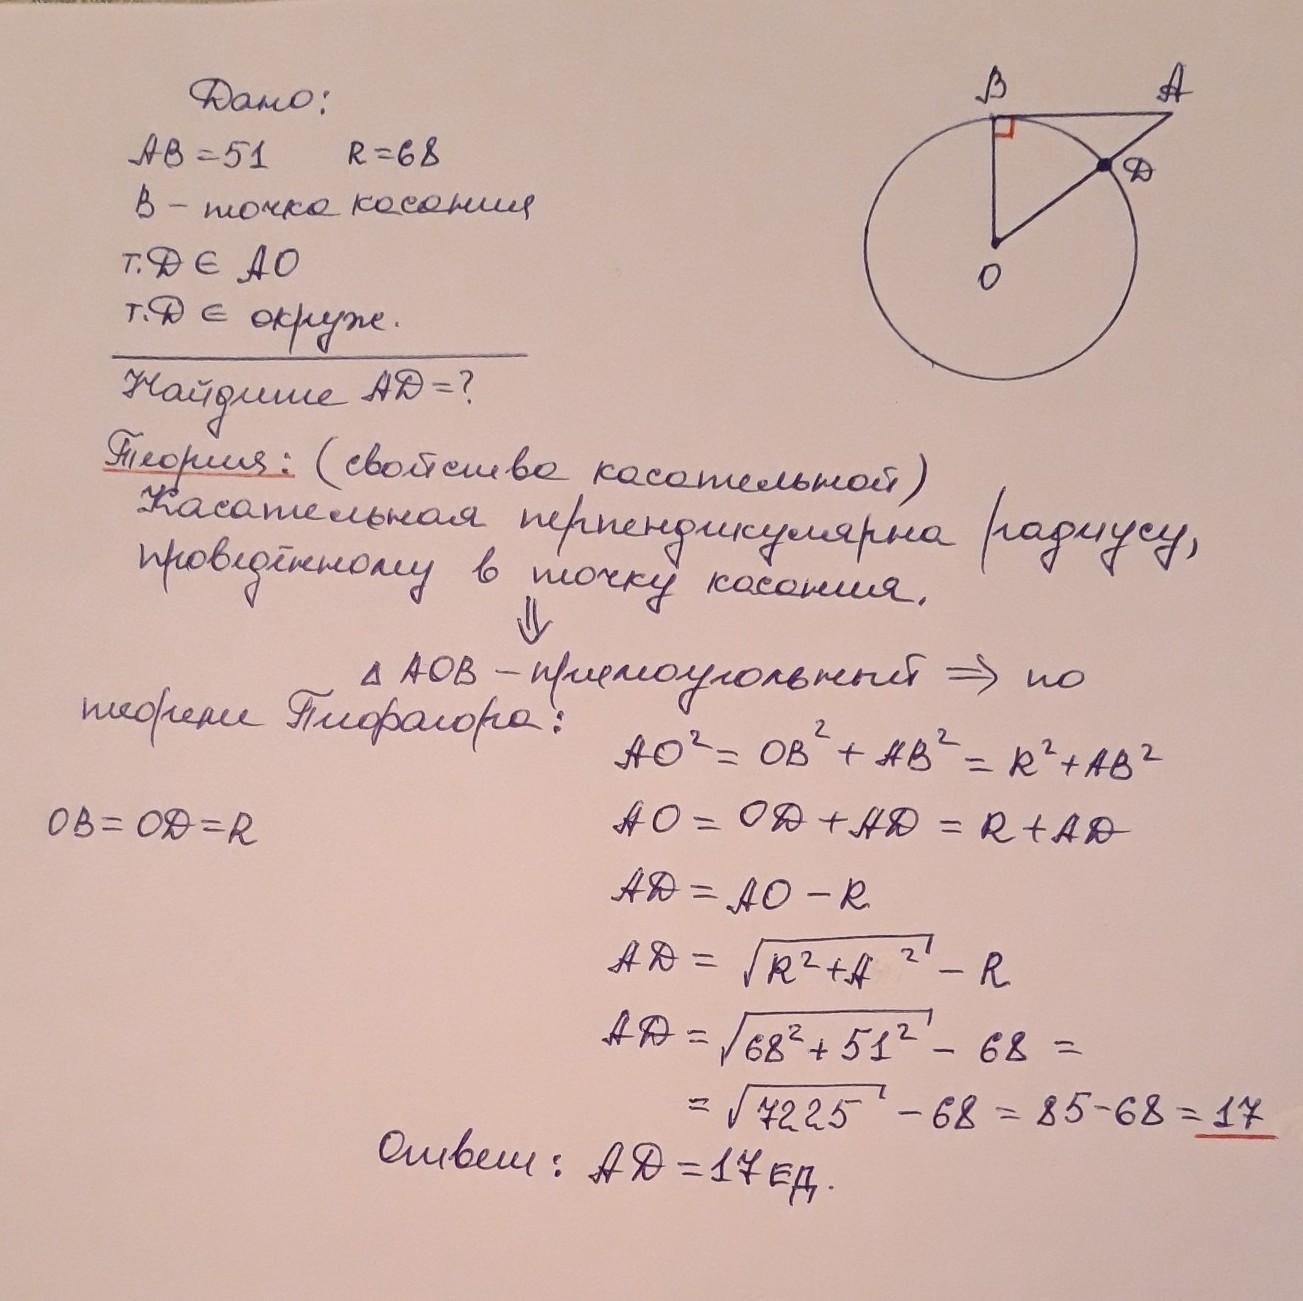 Дано:
AB = 51 R = 68
B – точка касания
т.D ∈ AO
т.D ∈ окруж.
Найдите AD = ?
Теория: (свойства касательной)
Касательная перпендикулярна радиусу,
проведённому в точку касания.
⇓
Δ AOB – прямоугольный ⇒ по
теореме Пифагора:
AO² = OB² + AB² = R² + AB²
OB = OD = R
AO = OD + AD = R + AD
AD = AO – R
AD = √(R² + A ²) – R
AD = √(68² + 51²) – 68 =
= √7225 – 68 = 85 – 68 = 17
Ответ: AD = 17 ед.
B
A
D
O